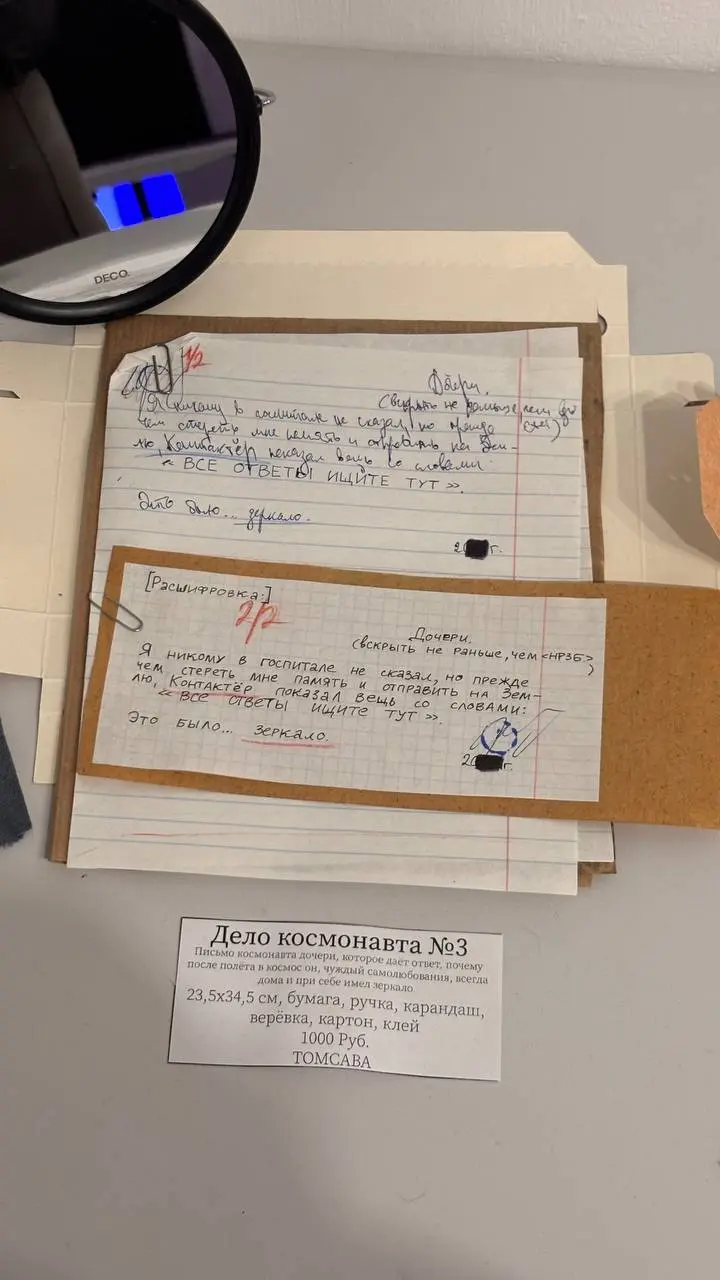 DECO.
1/2
Дочери.
(вскрыть не раньше, чем
Я никому в госпитале не сказал, но прежде
чем стереть мне память и отправить на Зем-
лю, Контактёр показал вещь со словами:
« ВСЕ ОТВЕТЫ ИЩИТЕ ТУТ ».
Это было... зеркало.
2 г.
[Расшифровка:]
2/2
Дочери.
(вскрыть не раньше, чем <НРЗБ.>
)
Я никому в госпитале не сказал, но прежде
чем стереть мне память и отправить на Зем-
лю, Контактёр показал вещь со словами:
« ВСЕ ОТВЕТЫ ИЩИТЕ ТУТ ».
Это было... зеркало.
20 г.
Дело космонавта №3
Письмо космонавта дочери, которое даёт ответ, почему
после полёта в космос он, чуждый самолюбования, всегда
дома и при себе имел зеркало
23,5х34,5 см, бумага, ручка, карандаш,
верёвка, картон, клей
1000 Руб.
ТОМСАВА